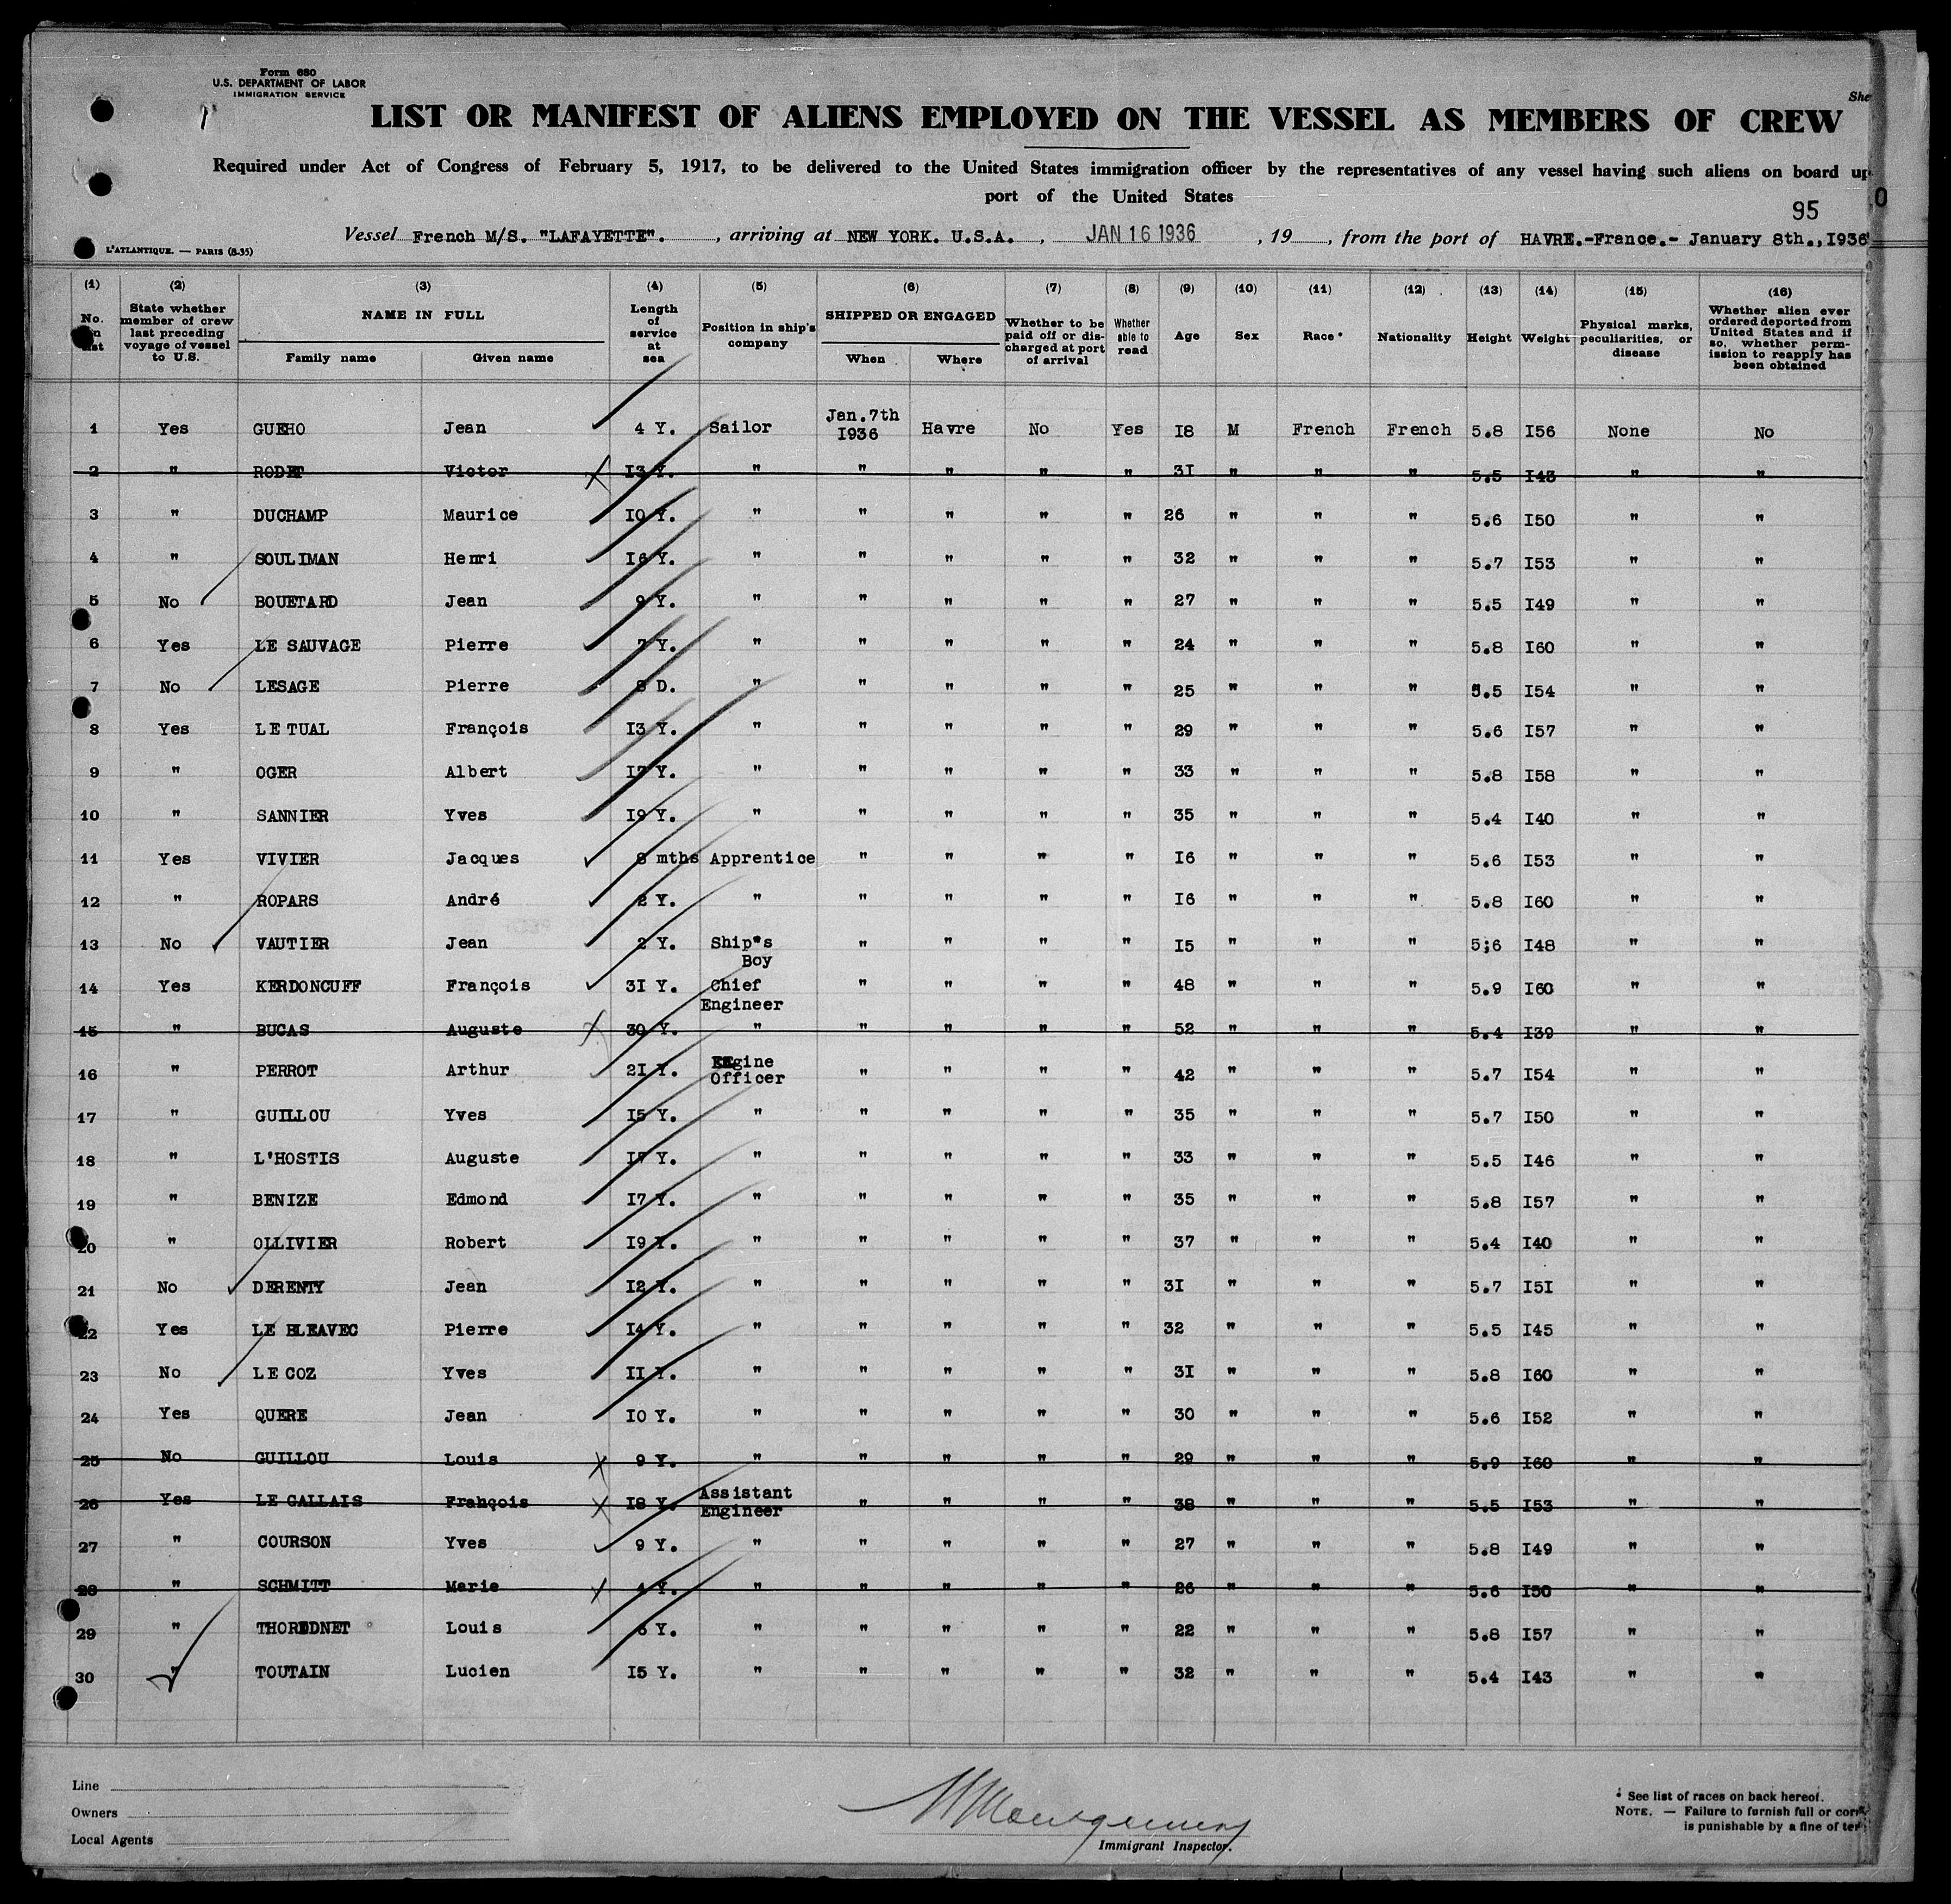 Form 680
U.S. DEPARTMENT OF LABOR
IMMIGRATION SERVICE
She
LIST OR MANIFEST OF ALIENS EMPLOYED ON THE VESSEL AS MEMBERS OF CREW
Required under Act of Congress of February 5, 1917, to be delivered to the United States immigration officer by the representatives of any vessel having such aliens on board up
port of the United States
95
Vessel French M/S. "LAFAYETTE"., arriving at NEW YORK. U.S.A., JAN 16 1936, 19, from the port of HAVRE.-France.- January 8th., I936
L'ATLANTIQUE. — PARIS (8-35)
(1) (2) (3) (4) (5) (6) (7) (8) (9) (10) (11) (12) (13) (14) (15) (16)
No. on list
State whether member of crew last preceding voyage of vessel to U.S.
NAME IN FULL
Family name Given name
Length of service at sea
Position in ship's company
SHIPPED OR ENGAGED
When Where
Whether to be paid off or discharged at port of arrival
Whether able to read
Age
Sex
Race *
Nationality
Height
Weight
Physical marks, peculiarities, or disease
Whether alien ever ordered deported from United States and if so, whether permission to reapply has been obtained
1 Yes GUEHO Jean 4 Y. Sailor Jan.7th I936 Havre No Yes I8 M French French 5.8 I56 None No
2 " RODET Victor I3 Y. " " " " " 3I " " " 5.5 I43 " "
3 " DUCHAMP Maurice I0 Y. " " " " " 26 " " " 5.6 I50 " "
4 " SOULIMAN Henri I6 Y. " " " " " 32 " " " 5.7 I53 " "
5 No BOUETARD Jean 9 Y. " " " " " 27 " " " 5.5 I49 " "
6 Yes LE SAUVAGE Pierre 7 Y. " " " " " 24 " " " 5.8 I60 " "
7 No LESAGE Pierre 8 D. " " " " " 25 " " " 5.5 I54 " "
8 Yes LE TUAL François I3 Y. " " " " " 29 " " " 5.6 I57 " "
9 " OGER Albert I7 Y. " " " " " 33 " " " 5.8 I58 " "
10 " SANNIER Yves I9 Y. " " " " " 35 " " " 5.4 I40 " "
11 Yes VIVIER Jacques 8 mths Apprentice " " " " I6 " " " 5.6 I53 " "
12 " ROPARS André 2 Y. " " " " " I6 " " " 5.8 I60 " "
13 No VAUTIER Jean 2 Y. Ship"s Boy " " " " I5 " " " 5;6 I48 " "
14 Yes KERDONCUFF François 3I Y. Chief Engineer " " " " 48 " " " 5.9 I60 " "
15 " BUCAS Auguste 30 Y. " " " " " 52 " " " 5.4 I39 " "
16 " PERROT Arthur 2I Y. Engine Officer " " " " 42 " " " 5.7 I54 " "
17 " GUILLOU Yves I5 Y. " " " " " 35 " " " 5.7 I50 " "
18 " L'HOSTIS Auguste I7 Y. " " " " " 33 " " " 5.5 I46 " "
19 " BENIZE Edmond I7 Y. " " " " " 35 " " " 5.8 I57 " "
20 " OLLIVIER Robert I9 Y. " " " " " 37 " " " 5.4 I40 " "
21 No DERENTY Jean I2 Y. " " " " " 3I " " " 5.7 I5I " "
22 Yes LE BLEAVEC Pierre I4 Y. " " " " " 32 " " " 5.5 I45 " "
23 No LE COZ Yves II Y. " " " " " 3I " " " 5.8 I60 " "
24 Yes QUERE Jean I0 Y. " " " " " 30 " " " 5.6 I52 " "
25 No GUILLOU Louis 9 Y. " " " " " 29 " " " 5.9 I60 " "
26 Yes LE GALLAIS François I8 Y. Assistant Engineer " " " " 38 " " " 5.5 I53 " "
27 " COURSON Yves 9 Y. " " " " " 27 " " " 5.8 I49 " "
28 " SCHMITT Marie 4 Y. " " " " " 26 " " " 5.6 I50 " "
29 " Louis 6 Y. " " " " " 22 " " " 5.8 I57 " "
30 " TOUTAIN Lucien I5 Y. " " " " " 32 " " " 5.4 I43 " "
Line
Owners
Local Agents
Montgomery
Immigrant Inspector.
* See list of races on back hereof.
NOTE. — Failure to furnish full or corr
is punishable by a fine of ten